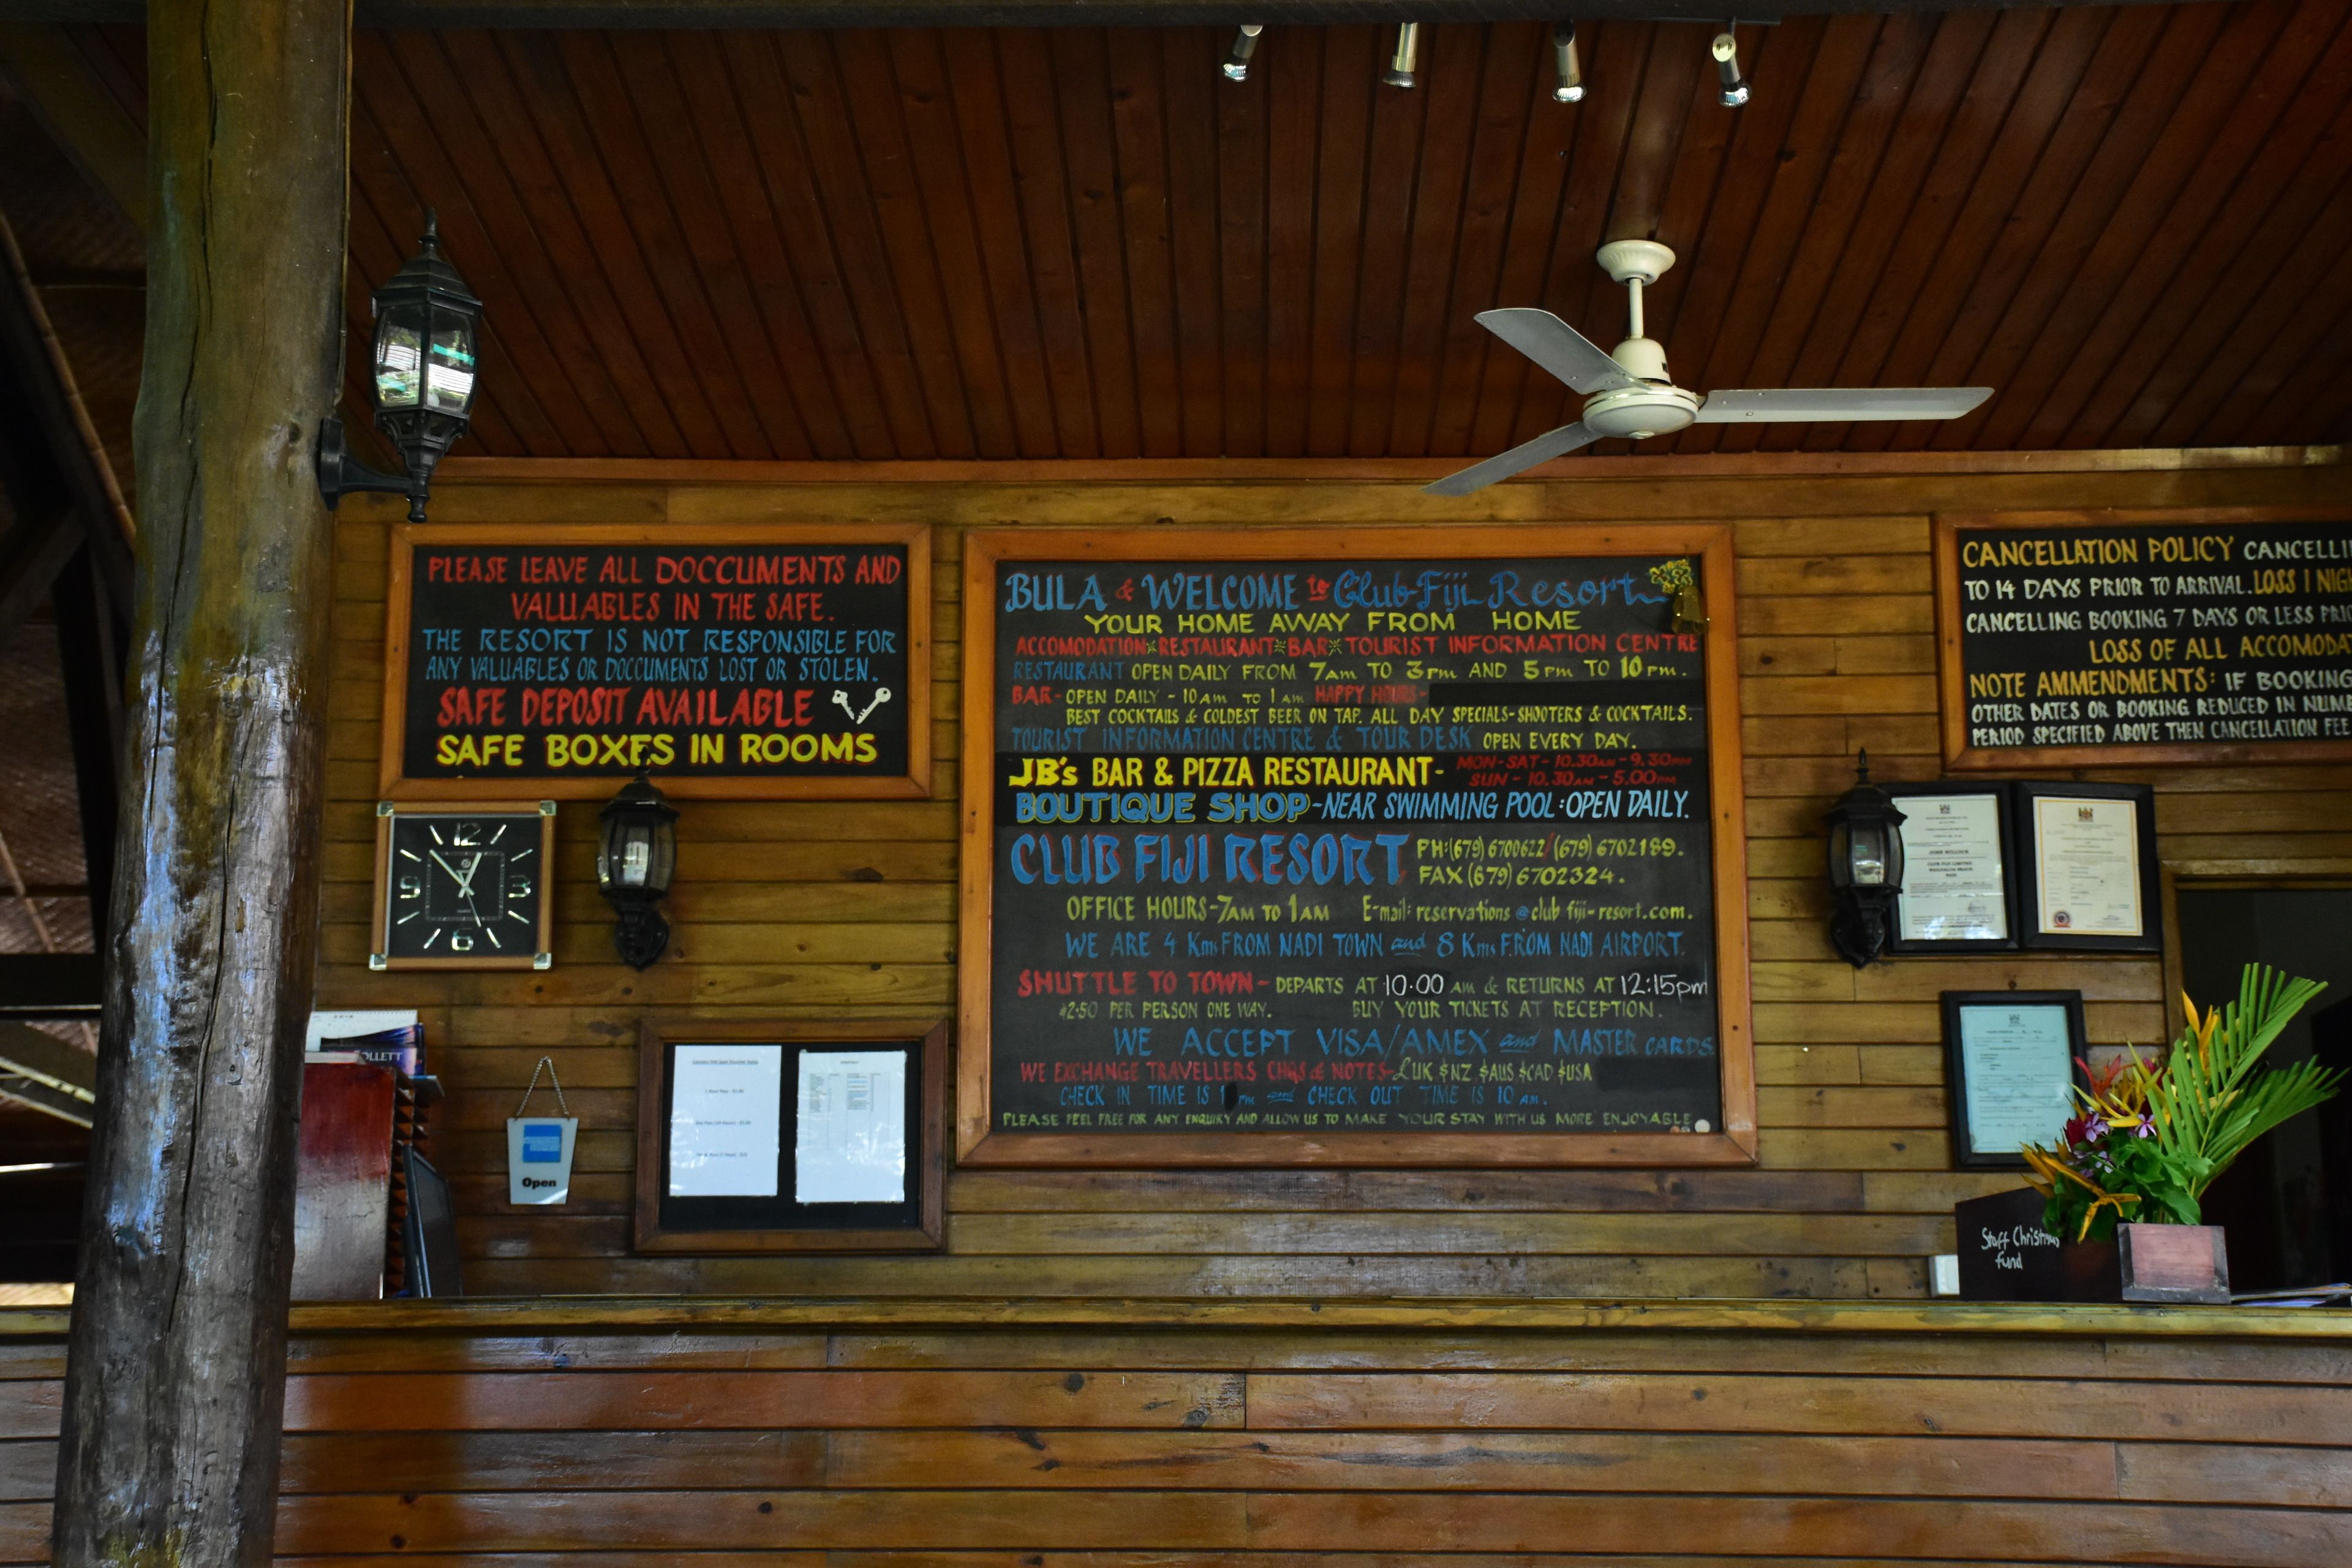 PLEASE LEAVE ALL DOCCUMENTS AND
VALUABLES IN THE SAFE.
THE RESORT IS NOT RESPONSIBLE FOR
ANY VALUABLES OR DOCCUMENTS LOST OR STOLEN.
SAFE DEPOSIT AVAILABLE
SAFE BOXES IN ROOMS
12
3
6
9
OLLETT
Open
BULA & WELCOME to Club Fiji Resort
YOUR HOME AWAY FROM HOME
ACCOMODATION RESTAURANT BAR TOURIST INFORMATION CENTRE
RESTAURANT OPEN DAILY FROM 7am TO 3pm AND 5pm TO 10pm.
BAR- OPEN DAILY - 10am TO 1am HAPPY HOURS-
BEST COCKTAILS & COLDEST BEER ON TAP. ALL DAY SPECIALS-SHOOTERS & COCKTAILS.
TOURIST INFORMATION CENTRE & TOUR DESK OPEN EVERY DAY.
JB's BAR & PIZZA RESTAURANT- MON-SAT-10.30AM-9.30PM
SUN-10.30AM-5.00PM
BOUTIQUE SHOP-NEAR SWIMMING POOL:OPEN DAILY.
CLUB FIJI RESORT PH:(679) 6700622/(679) 6702189.
FAX (679) 6702324.
OFFICE HOURS-7AM TO 1AM E-mail: reservations@club fiji-resort.com.
WE ARE 4 Kms FROM NADI TOWN and 8 Kms FROM NADI AIRPORT.
SHUTTLE TO TOWN- DEPARTS AT 10:00 AM & RETURNS AT 12:15pm
$2.50 PER PERSON ONE WAY. BUY YOUR TICKETS AT RECEPTION.
WE ACCEPT VISA/AMEX and MASTER CARDS
WE EXCHANGE TRAVELLERS CHQS & NOTES-£UK $NZ $AUS $CAD $USA
CHECK IN TIME IS 1 PM and CHECK OUT TIME IS 10 AM.
PLEASE FEEL FREE FOR ANY ENQUIRY AND ALLOW US TO MAKE YOUR STAY WITH US MORE ENJOYABLE
CANCELLATION POLICY CANCELLI
TO 14 DAYS PRIOR TO ARRIVAL. LOSS 1 NIG
CANCELLING BOOKING 7 DAYS OR LESS PRI
LOSS OF ALL ACCOMODA
NOTE AMMENDMENTS: IF BOOKING
OTHER DATES OR BOOKING REDUCED IN NUM
PERIOD SPECIFIED ABOVE THEN CANCELLATION FEE
Staff Christmas
fund